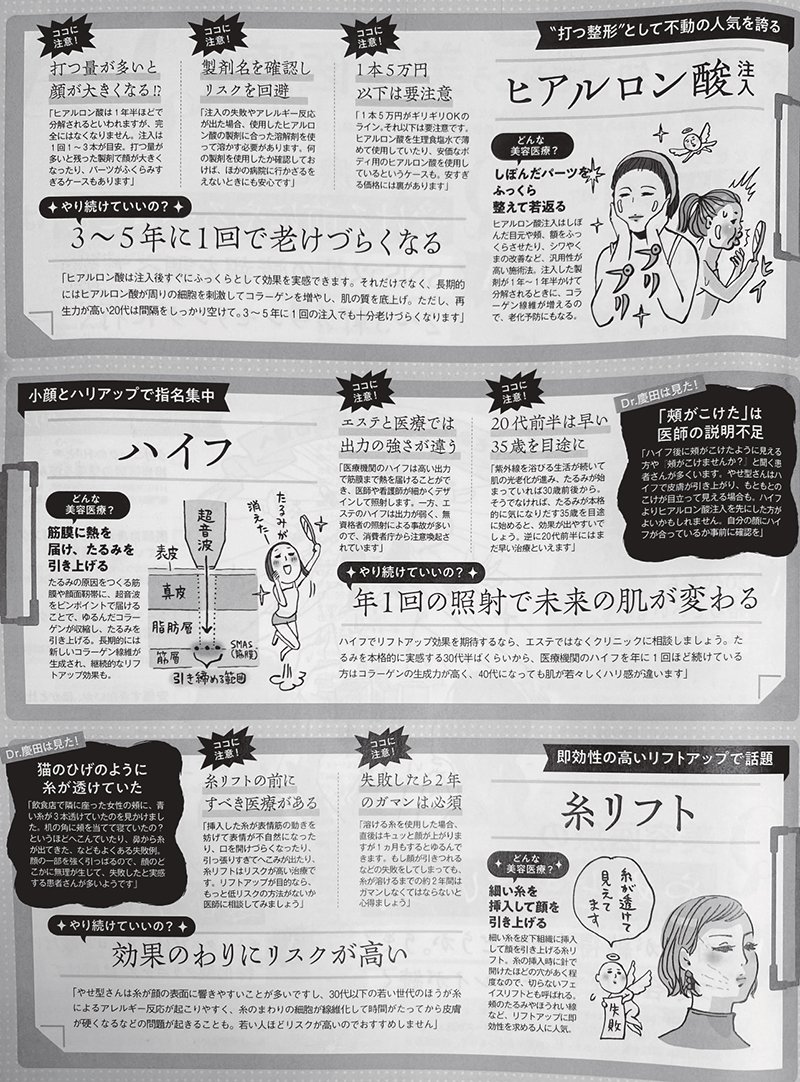 “打つ整形”として不動の人気を誇る
ヒアルロン酸注入
どんな
美容医療？
しぼんだパーツを
ふっくら
整えて若返る
ヒアルロン酸注入はしぼ
んだ目元や頬、額をふっ
くらさせたり、シワやく
まの改善など、汎用性が
高い施術法。注入した製
剤が1年～1年半かけて
分解されるときに、コラ
ーゲン線維が増えるの
で、老化予防にもなる。
プリプリ
ヒィ
ココに
注意！
1本5万円
以下は要注意
「1本5万円がギリギリOKの
ライン。それ以下は要注意です。
ヒアルロン酸を生理食塩水で薄
めて使用していたり、安価なボ
ディ用のヒアルロン酸を使用し
ているというケースも。安すぎ
る価格には裏があります」
ココに
注意！
製剤名を確認し
リスクを回避
「注入の失敗やアレルギー反応
が出た場合、使用したヒアルロ
ン酸の製剤に合った溶解剤を使
って溶かす必要があります。何
の製剤を使用したか確認してお
けば、ほかの病院に行かざるを
えないときにも安心です」
ココに
注意！
打つ量が多いと
顔が大きくなる!?
「ヒアルロン酸は1年半ほどで
分解されるといわれますが、完
全にはなくなりません。注入は
1回1～3本が目安。打つ量が
多いと残った製剤で顔が大きく
なったり、パーツがふくらみす
ぎるケースもあります」
やり続けていいの？
3～5年に1回で老けづらくなる
「ヒアルロン酸は注入後すぐにふっくらとして効果を実感できます。それだけでなく、長期的
にはヒアルロン酸が周りの細胞を刺激してコラーゲンを増やし、肌の質を底上げ。ただし、再
生力が高い20代は間隔をしっかり空けて。3～5年に1回の注入でも十分老けづらくなります」
小顔とハリアップで指名集中
ハイフ
どんな
美容医療？
筋膜に熱を
届け、たるみを
引き上げる
たるみの原因をつくる筋
膜や顔面靭帯に、超音波
をピンポイントで届ける
ことで、ゆるんだコラー
ゲンが収縮し、たるみを
引き上げる。長期的には
新しいコラーゲン線維が
生成され、継続的なリフ
トアップ効果も。
超音波
表皮
真皮
脂肪層
筋層
SMAS
(筋膜)
引き締める範囲
たるみが
消えた
ココに
注意！
エステと医療では
出力の強さが違う
「医療機関のハイフは高い出力
で筋膜まで熱を届けることがで
き、医師や看護師が細かくデザ
インして照射します。一方、エ
ステのハイフは出力が弱く、無
資格者の照射による事故が多い
ので、消費者庁から注意喚起さ
れています」
ココに
注意！
20代前半は早い
35歳を目途に
「紫外線を浴びる生活が続いて
肌の光老化が進み、たるみが始
まっていれば30歳前後から。
そうでなければ、たるみが本格
的に気になりだす35歳を目途
に始めると、効果が出やすいで
しょう。逆に20代前半にはま
だ早い治療といえます」
Dr.慶田は見た！
「頬がこけた」は
医師の説明不足
「ハイフ後に頬がこけたように見える
方や『頬がこけませんか？』と聞く患
者さんが多くいます。やせ型さんはハ
イフで皮膚が引き上がり、もともとの
こけが目立って見える場合も。ハイフ
よりヒアルロン酸注入を先にした方が
よいかもしれません。自分の顔にハイ
フが合っているか事前に確認を」
やり続けていいの？
年1回の照射で未来の肌が変わる
ハイフでリフトアップ効果を期待するなら、エステではなくクリニックに相談しましょう。た
るみを本格的に実感する30代半ばくらいから、医療機関のハイフを年に1回ほど続けている
方はコラーゲンの生成力が高く、40代になっても肌が若々しくハリ感が違います」
即効性の高いリフトアップで話題
糸リフト
どんな
美容医療？
細い糸を
挿入して顔を
引き上げる
細い糸を皮下組織に挿入
して顔を引き上げる糸リ
フト。糸の挿入時に針で
開けたほどの穴があく程
度なので、切らないフェ
イスリフトとも呼ばれる。
頬のたるみやほうれい線
など、リフトアップに即
効性を求める人に人気。
糸が透けて
見えて
ます
失敗
ココに
注意！
失敗したら2年
のガマンは必須
「溶ける糸を使用した場合、
直後はキュッと顔が上がりま
すが1ヵ月もするとゆるんで
きます。もし顔が引きつれる
などの失敗をしてしまっても、
糸が溶けるまでの約2年間は
ガマンしなくてはならないと
心得ましょう」
ココに
注意！
糸リフトの前に
すべき医療がある
「挿入した糸が表情筋の動きを
妨げて表情が不自然になった
り、口を開けづらくなったり、
引っ張りすぎてへこみが出たり、
糸リフトはリスクが高い治療で
す。リフトアップが目的なら、
もっと低リスクの方法がないか
医師に相談してみましょう」
Dr.慶田は見た！
猫のひげのように
糸が透けていた
「飲食店で隣に座った女性の頬に、青
い糸が3本透けていたのを見かけまし
た。机の角に頬を当てて寝ていたの？
というほどへこんでいたり、鼻から糸
が出てきた、などもよくある失敗例。
顔の一部を強く引っぱるので、顔のど
こかに無理が生じて、失敗したと実感
する患者さんが多いようです」
やり続けていいの？
効果のわりにリスクが高い
「やせ型さんは糸が顔の表面に響きやすいことが多いですし、30代以下の若い世代のほうが糸
によるアレルギー反応が起こりやすく、糸のまわりの細胞が線維化して時間がたってから皮膚
が硬くなるなどの問題が起きることも。若い人ほどリスクが高いのでおすすめしません」